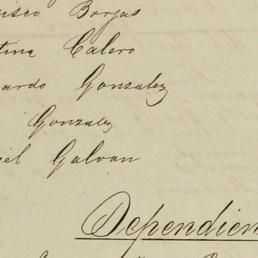 isco Borjas
tina Calero
ardo Gonzalez
Gonzalez
iel Galvan
Dependien